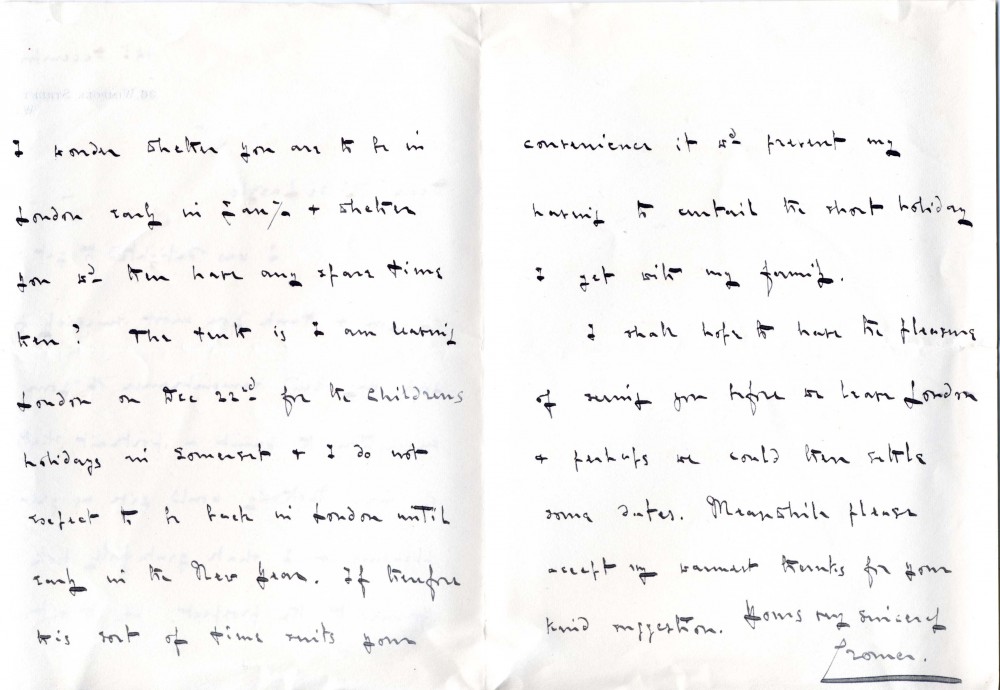 I wonder whether you are to be in
London early in Jan/ & whether
you wd then have any spare time
then? The truth is I am leaving
London on Dec 22nd for the Childrens
holidays in Somerset & I do not
expect to be back in London until
early in the New Year. If therefore
this sort of time suits your
convenience it wd prevent my
having to curtail the short holiday
I get with my family.
I shall hope to have the pleasure
of seeing you before we leave London
& perhaps we could then settle
some dates. Meanwhile please
accept my warmest thanks for your
kind suggestion. Yours very sincerely
Cromer.